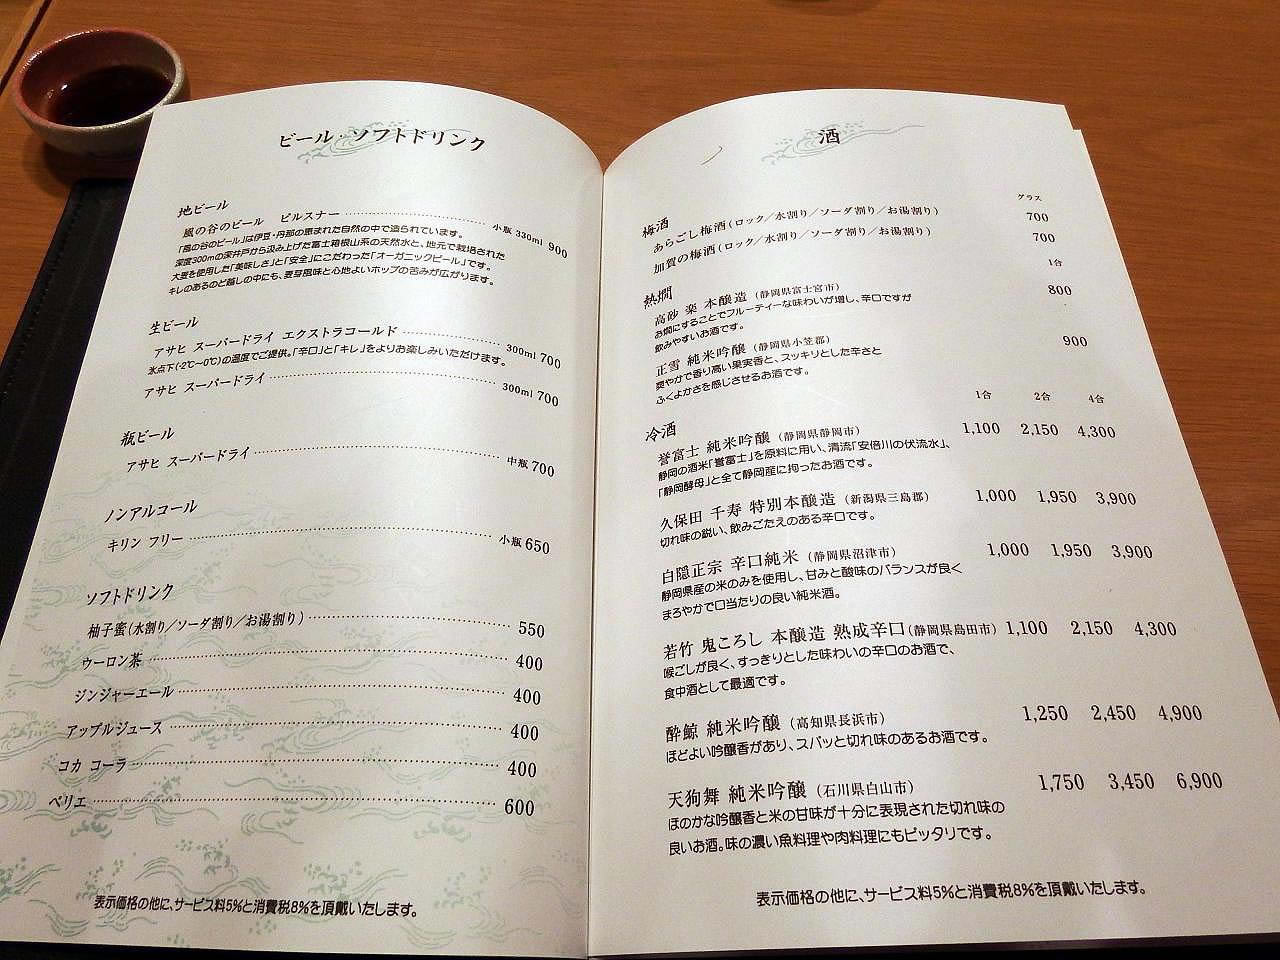 ビール・ソフトドリンク
地ビール
風の谷のビール ピルスナー 小瓶 330ml 900
「風の谷のビール」は伊豆・丹那の恵まれた自然の中で造られています。
深度300mの深井戸から汲み上げた富士箱根山系の天然水と、地元で栽培された
大麦を使用した「美味しさ」と「安全」にこだわった「オーガニックビール」です。
キレのあるのど越しの中にも、麦芽風味と心地よいホップの苦みが広がります。
生ビール
アサヒ スーパードライ エクストラコールド 300ml 700
氷点下(-2℃〜0℃)の温度でご提供。「辛口」と「キレ」をよりお楽しみいただけます。
アサヒ スーパードライ 300ml 700
瓶ビール
アサヒ スーパードライ 中瓶 700
ノンアルコール
キリン フリー 小瓶 650
ソフトドリンク
柚子蜜(水割り/ソーダ割り/お湯割り) 550
ウーロン茶 400
ジンジャーエール 400
アップルジュース 400
コカ コーラ 400
ペリエ 600
表示価格の他に、サービス料5%と消費税8%を頂戴いたします。
酒
グラス
梅酒
あらごし梅酒(ロック/水割り/ソーダ割り/お湯割り) 700
加賀の梅酒(ロック/水割り/ソーダ割り/お湯割り) 700
1合
熱燗
高砂 楽 本醸造 (静岡県富士宮市) 800
お燗にすることでフルーティーな味わいが増し、辛口ですが
飲みやすいお酒です。
正雪 純米吟醸 (静岡県小笠郡) 900
爽やかで香り高い果実香と、スッキリとした辛さと
ふくよかさを感じさせるお酒です。
1合 2合 4合
冷酒
誉富士 純米吟醸 (静岡県静岡市) 1,100 2,150 4,300
静岡の酒米「誉富士」を原料に用い、清流「安倍川の伏流水」、
「静岡酵母」と全て静岡産に拘ったお酒です。
久保田 千寿 特別本醸造 (新潟県三島郡) 1,000 1,950 3,900
切れ味の鋭い、飲みごたえのある辛口です。
白隠正宗 辛口純米 (静岡県沼津市) 1,000 1,950 3,900
静岡県産の米のみを使用し、甘みと酸味のバランスが良く
まろやかで口当たりの良い純米酒。
若竹 鬼ころし 本醸造 熟成辛口(静岡県島田市) 1,100 2,150 4,300
喉ごしが良く、すっきりとした味わいの辛口のお酒で、
食中酒として最適です。
酔鯨 純米吟醸 (高知県長浜市) 1,250 2,450 4,900
ほどよい吟醸香があり、スパッと切れ味のあるお酒です。
天狗舞 純米吟醸 (石川県白山市) 1,750 3,450 6,900
ほのかな吟醸香と米の甘味が十分に表現された切れ味の
良いお酒。味の濃い魚料理や肉料理にもピッタリです。
表示価格の他に、サービス料5%と消費税8%を頂戴いたします。